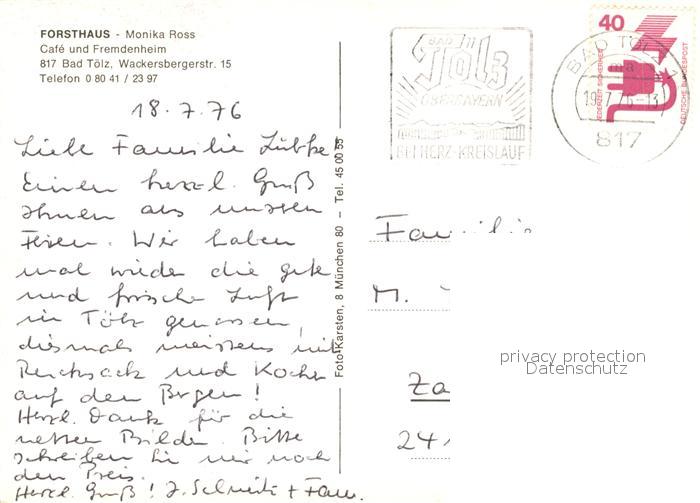 FORSTHAUS - Monika Ross
Café und Fremdenheim
817 Bad Tölz, Wackersbergerstr. 15
Telefon 0 80 41 / 23 97
18.7.76
Liebe Familie Lübke
Einen herzl. Gruß
Ihnen aus unseren
Ferien. Wir haben
mal wieder die gute
und frische Luft
in Tölz genossen,
diesmal meistens mit
Rucksack und Kocher
auf den Bergen!
Herzl. Dank für die
netten Bilder. Bitte
schreiben Sie mir noch
den Preis.
Herzl. Gruß! J. Schmitz + Fam.
Foto-Karsten, 8 München 80 – Tel. 45 00 55
BAD
Tölz
OBERBAYERN
BEI HERZ-KREISLAUF
BAD TÖLZ
ma
19.7.76-13
817
40
JEDERZEIT SICHERHEIT
DEUTSCHE BUNDESPOST
Familie
M.
Za
24
privacy protection
Datenschutz